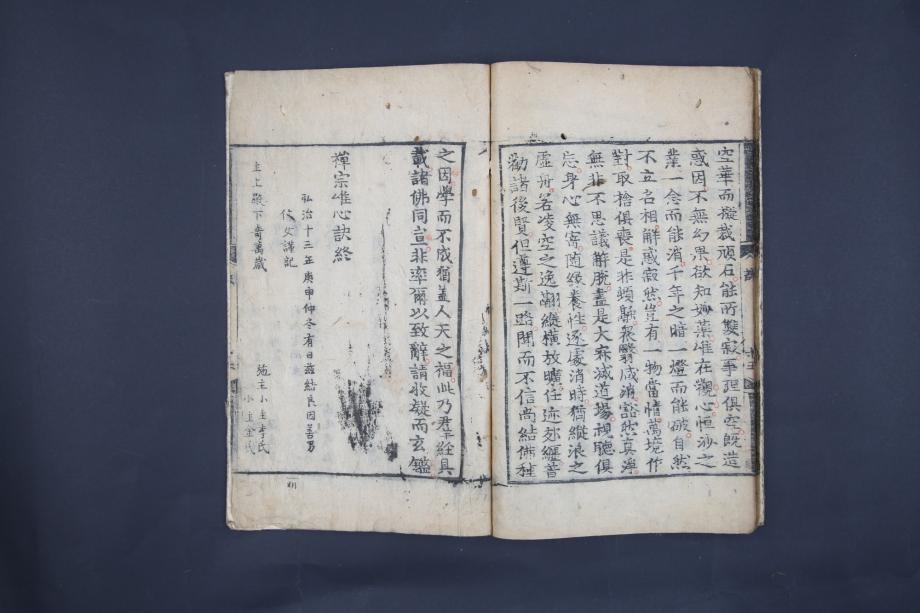 空華而擬栽頑石能所雙寂事理俱空旣造
惑因不無幻果欲知妙藥唯在觀心恒沙之
業一念而能消千年之暗一燈而能破自然
不立名相解惑寂然豈有一物當情萬境作
對取捨俱喪是非頓融衆翳咸消豁然眞淨
無非不思議解脫盡是大寂滅道場視聽俱
忘身心無寄随緣養性逐處消時猶縱浪之
虛舟若凌空之逸翮縱橫放曠任迹郊纏普
勸諸後賢但遵斯一路聞而不信尚結佛種
之因學而不成猶盖人天之福此乃群經具
載諸佛同宣非率爾以致辭請收凝而玄鑑
禪宗唯心訣終
弘治十三年庚申仲冬有日玆結良因善男
主上殿下壽萬歲
施主小主李氏
小主金氏